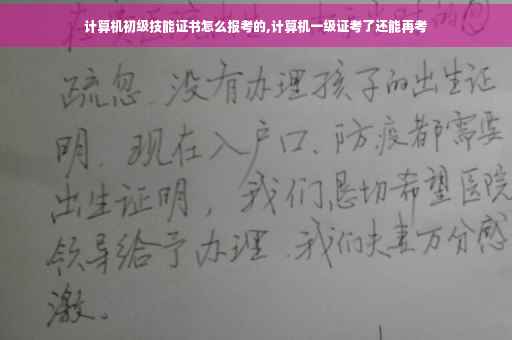 计算机初级技能证书怎么报考的,计算机一级证考了还能再考
疏忽、没有办理孩子的出生证
明、现在入户口、防疫都需要
出生证明，我们恳切希望医院
领导给予办理、我们夫妻万分感
激。